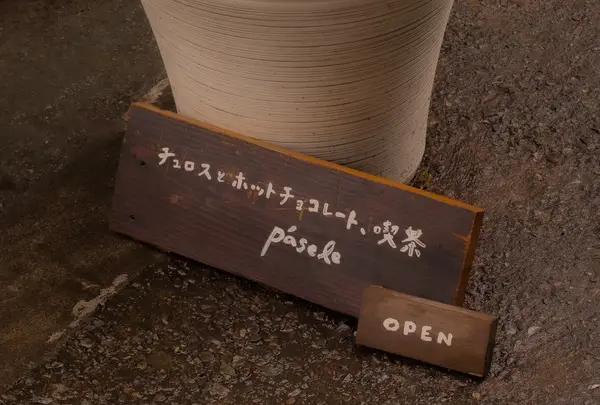 チュロスとホットチョコレート、喫茶
pásele
OPEN